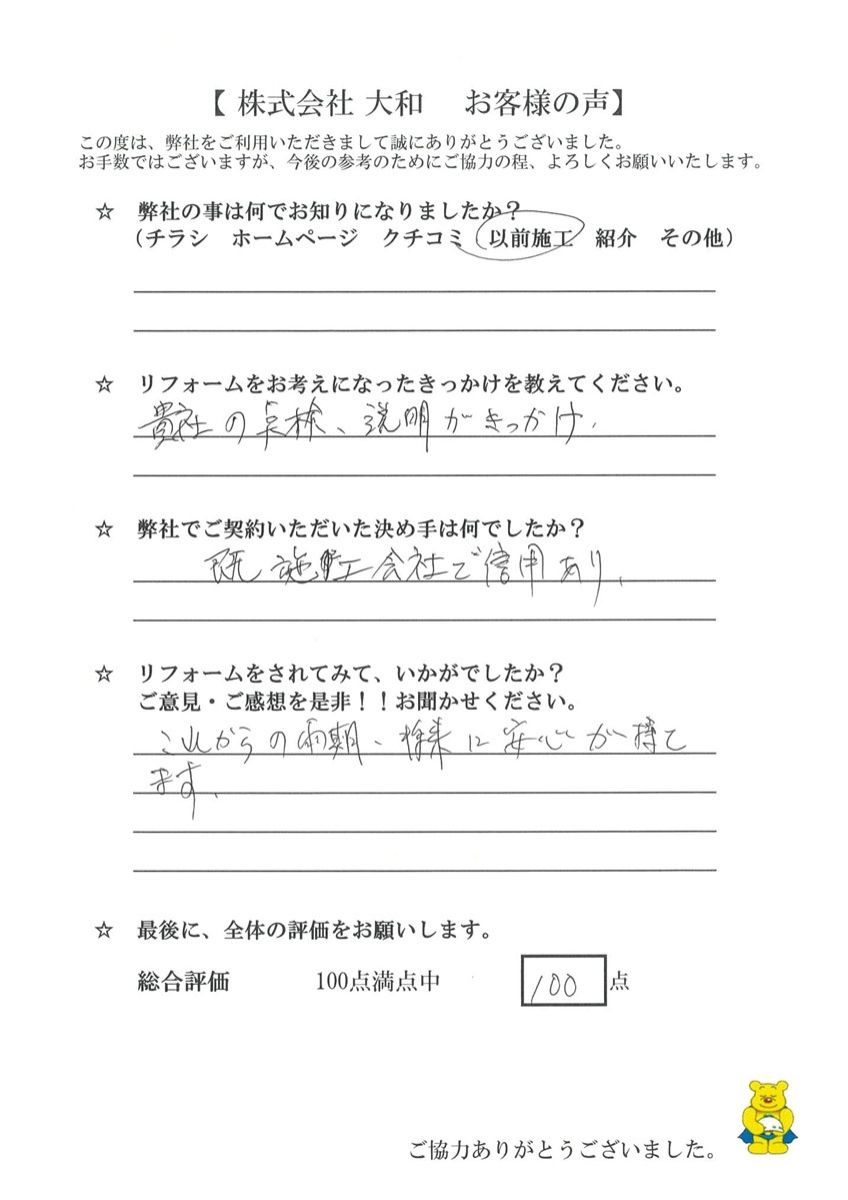 【 株式会社 大和　お客様の声】
この度は、弊社をご利用いただきまして誠にありがとうございました。
お手数ではございますが、今後の参考のためにご協力の程、よろしくお願いいたします。
☆　弊社の事は何でお知りになりましたか？
（チラシ　ホームページ　クチコミ　以前施工　紹介　その他）
☆　リフォームをお考えになったきっかけを教えてください。
貴社の点検、説明がきっかけ.
☆　弊社でご契約いただいた決め手は何でしたか？
既施工会社で信用あり.
☆　リフォームをされてみて、いかがでしたか？
ご意見・ご感想を是非！！お聞かせください。
これからの雨期、将来に安心が持て
ます.
☆　最後に、全体の評価をお願いします。
総合評価　100点満点中　100 点
ご協力ありがとうございました。